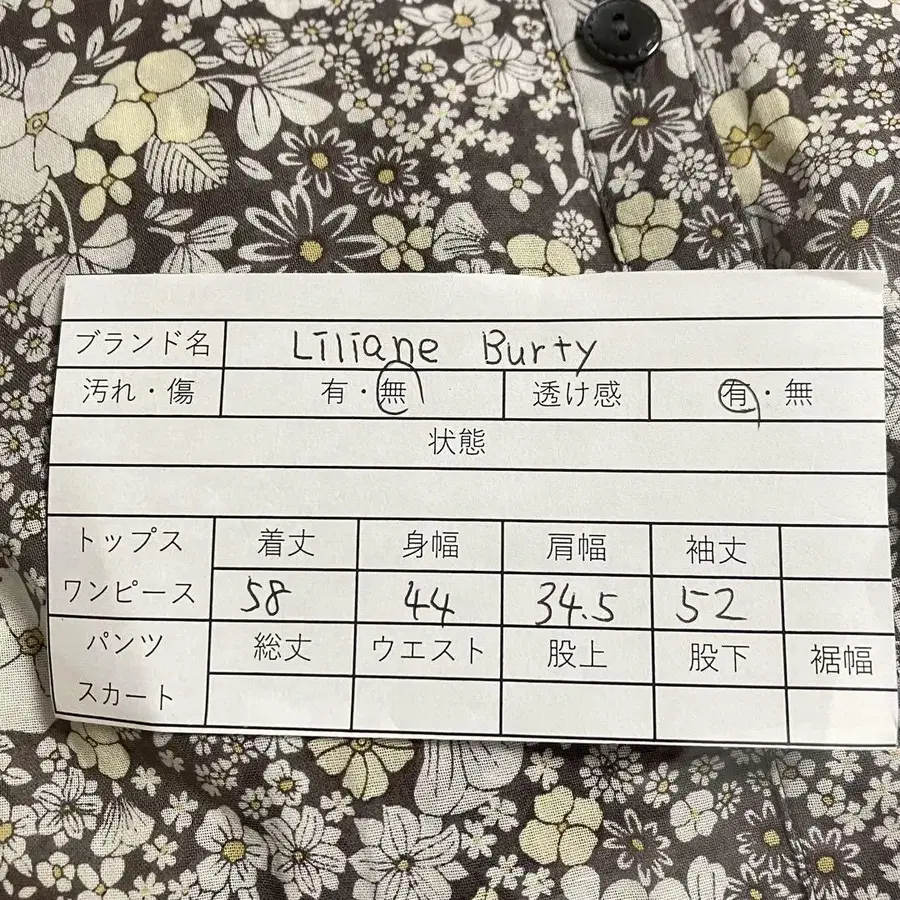 ブランド名 Liliane Burty
汚れ・傷 有・無 透け感 有・無
状態
トップス 着丈 身幅 肩幅 袖丈
ワンピース 58 44 34.5 52
パンツ 総丈 ウエスト 股上 股下 裾幅
スカート